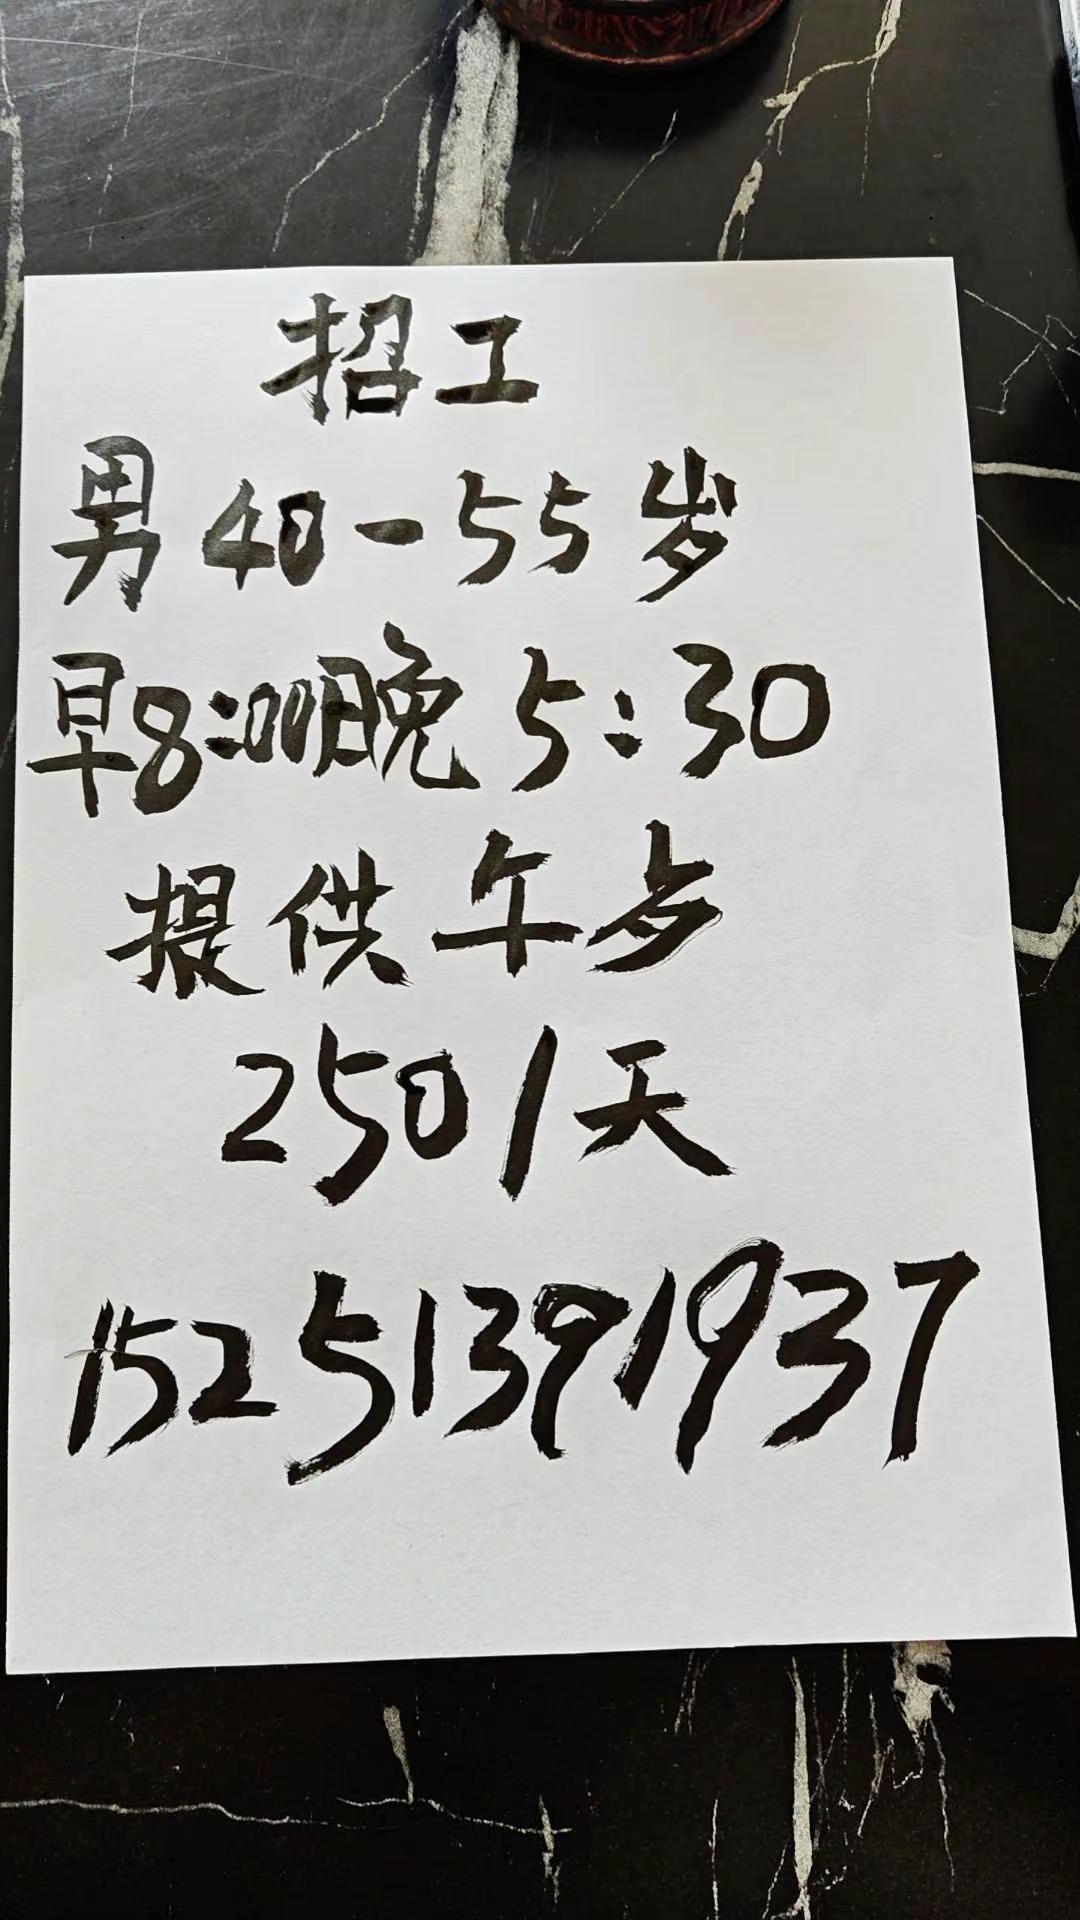 招工
男40-55岁
早8:00晚5:30
提供午歺
250/天
15251391937